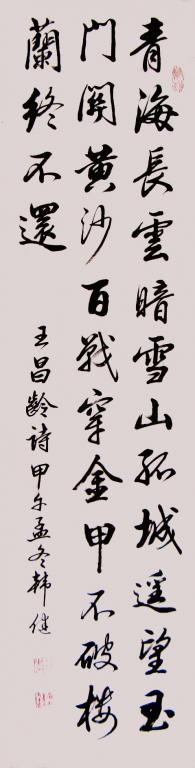 青海長雲暗雪山孤城遥望玉
門關黄沙百戰穿金甲不破樓
蘭終不還
王昌齡詩甲午孟冬韩